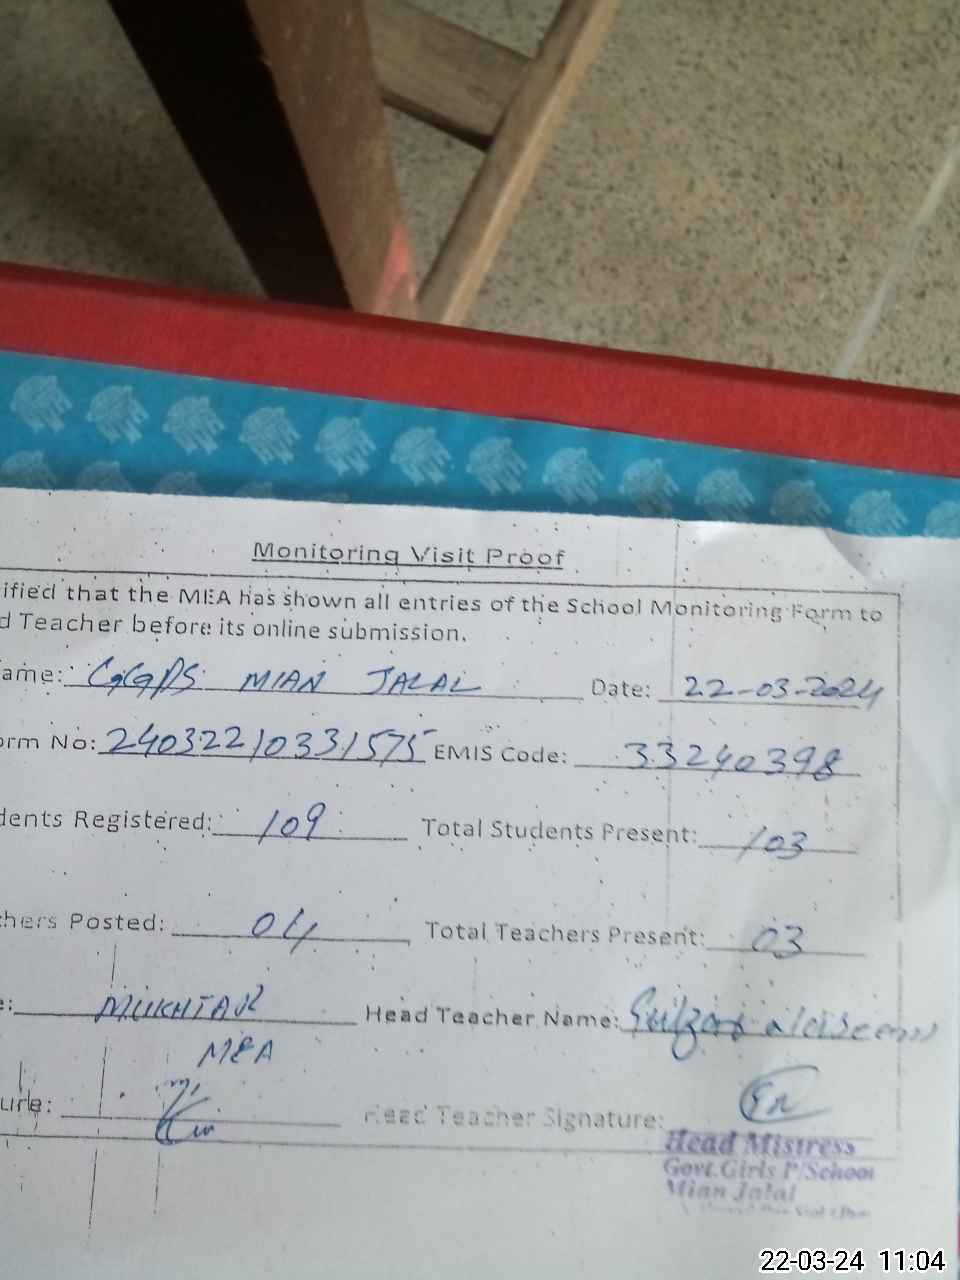 Monitoring Visit Proof
ified that the MEA has shown all entries of the School Monitoring Form to
d Teacher before its online submission.
ame: GGPS MIAN JALAL Date: 22-03-2024
orm No: 24032210331575 EMIS Code: 33240398
dents Registered: 109 Total Students Present: 103
chers Posted: 04 Total Teachers Present: 03
e: MUKHTAR Head Teacher Name:
MEA
ure: Head Teacher Signature:
Head Mistress
Govt. Girls P/School
Mian Jalal
22-03-24 11:04